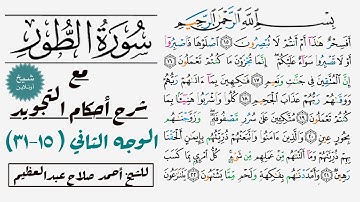 بِسْمِ اللَّهِ الرَّحْمَٰنِ الرَّحِيمِ
أَفَسِحْرٌ هَٰذَا أَمْ أَنتُمْ لَا تُبْصِرُونَ ١٥ ٱصْلَوْهَا فَٱصْبِرُوٓا۟
أَوْ لَا تَصْبِرُوا۟ سَوَآءٌ عَلَيْكُمْ إِنَّمَا تُجْزَوْنَ مَا كُنتُمْ تَعْمَلُونَ ١٦
إِنَّ ٱلْمُتَّقِينَ فِى جَنَّٰتٍ وَنَعِيمٍ ١٧ فَٰكِهِينَ بِمَآ ءَاتَىٰهُمْ رَبُّهُمْ
وَوَقَىٰهُمْ رَبُّهُمْ عَذَابَ ٱلْجَحِيمِ ١٨ كُلُوا۟ وَٱشْرَبُوا۟ هَنِيٓـًٔۢا بِمَا
كُنتُمْ تَعْمَلُونَ ١٩ مُتَّكِـِٔينَ عَلَىٰ سُرُرٍ مَّصْفُوفَةٍ وَزَوَّجْنَٰهُم
بِحُورٍ عِينٍ ٢٠ وَٱلَّذِينَ ءَامَنُوا۟ وَٱتَّبَعَتْهُمْ ذُرِّيَّتُهُم بِإِيمَٰنٍ أَلْحَقْنَا
بِهِمْ ذُرِّيَّتَهُمْ وَمَآ أَلَتْنَٰهُم مِّنْ عَمَلِهِم مِّن شَىْءٍ كُلُّ ٱمْرِئٍۭ بِمَا كَسَبَ
رَهِينٌ ٢١ وَأَمْدَدْنَٰهُم بِفَٰكِهَةٍ وَلَحْمٍ مِّمَّا يَشْتَهُونَ ٢٢ يَتَنَٰزَعُونَ
سُورَةُ الطُّور
مع
شيخ
أونلاين
شرح أحكام التجويد
الوجه الثاني (١٥-٣١)
للشيخ أحمد صلاح عبدالعظيم